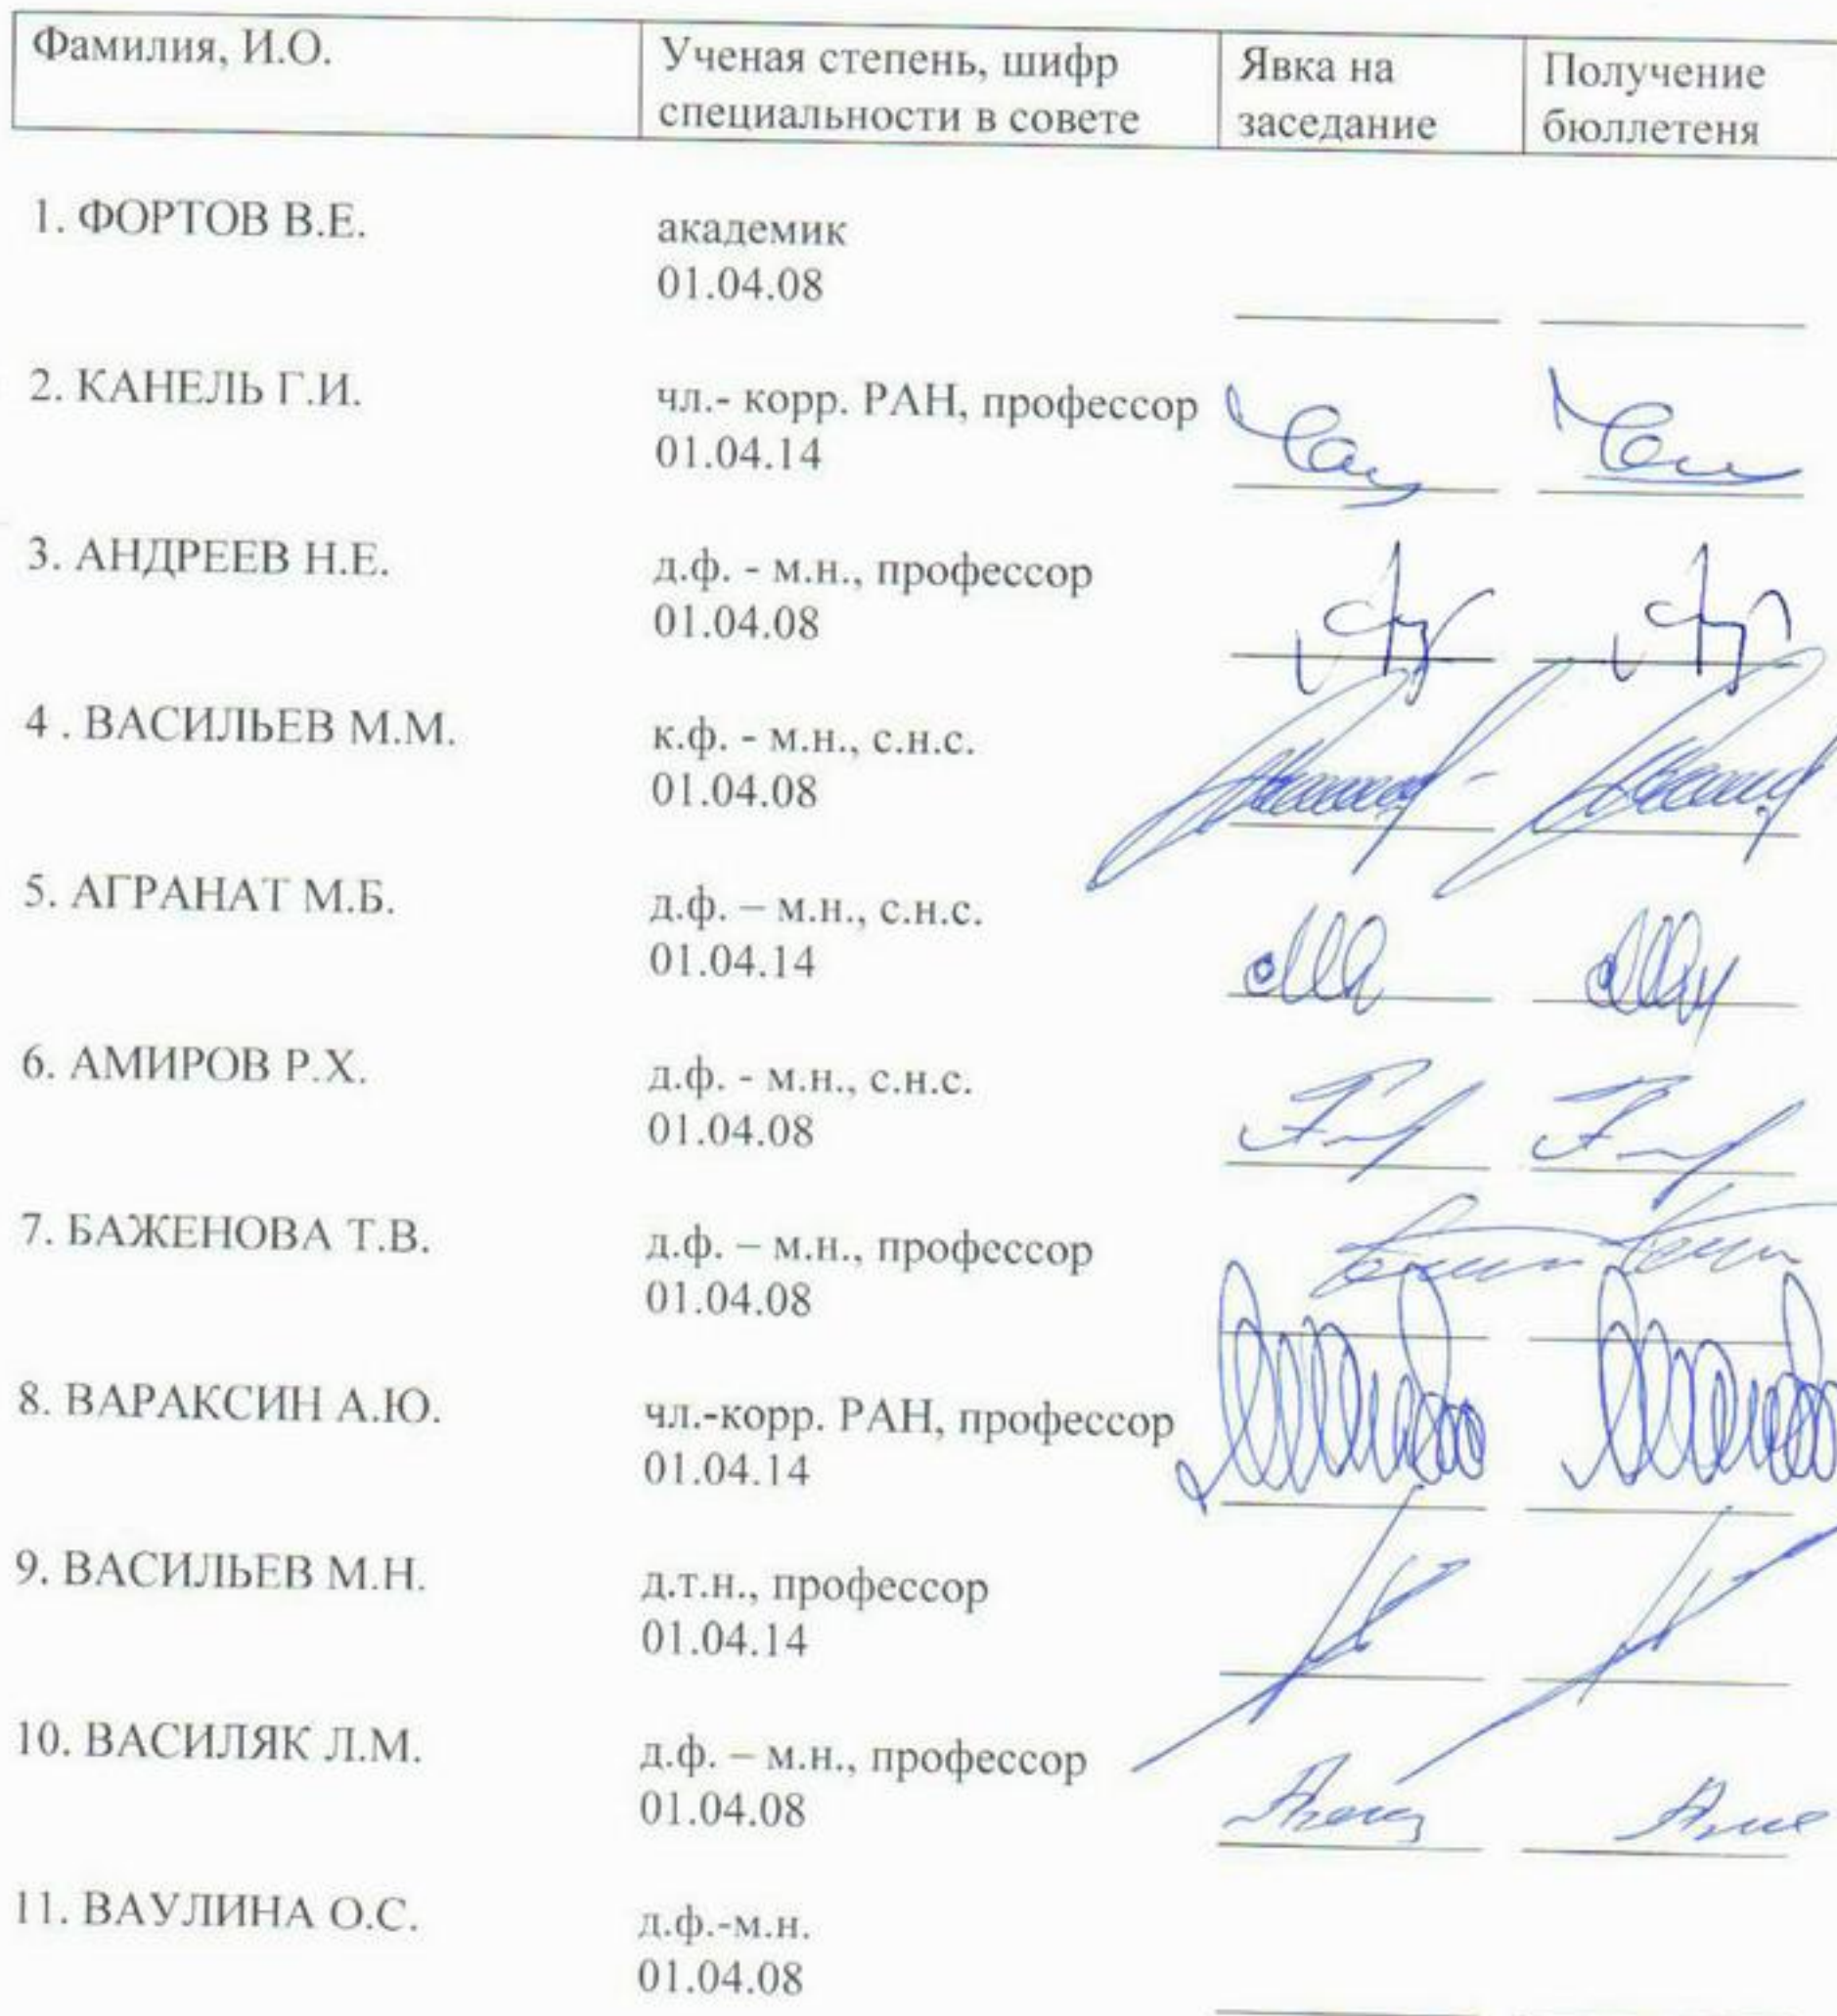 Фамилия, И.О.
Ученая степень, шифр специальности в совете
Явка на заседание
Получение бюллетеня
1. ФОРТОВ В.Е.
академик
01.04.08
2. КАНЕЛЬ Г.И.
чл.- корр. РАН, профессор
01.04.14
3. АНДРЕЕВ Н.Е.
д.ф. - м.н., профессор
01.04.08
4 . ВАСИЛЬЕВ М.М.
к.ф. - м.н., с.н.с.
01.04.08
5. АГРАНАТ М.Б.
д.ф. – м.н., с.н.с.
01.04.14
6. АМИРОВ Р.Х.
д.ф. - м.н., с.н.с.
01.04.08
7. БАЖЕНОВА Т.В.
д.ф. – м.н., профессор
01.04.08
8. ВАРАКСИН А.Ю.
чл.-корр. РАН, профессор
01.04.14
9. ВАСИЛЬЕВ М.Н.
д.т.н., профессор
01.04.14
10. ВАСИЛЯК Л.М.
д.ф. – м.н., профессор
01.04.08
11. ВАУЛИНА О.С.
д.ф.-м.н.
01.04.08